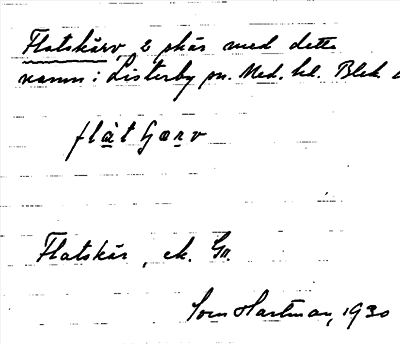 Flatskärv, 2 skär med detta
namn: Listerby sn. Med. hd. Blek
flàt
Flatskär, ek. G11.
Sven Hartman, 1930